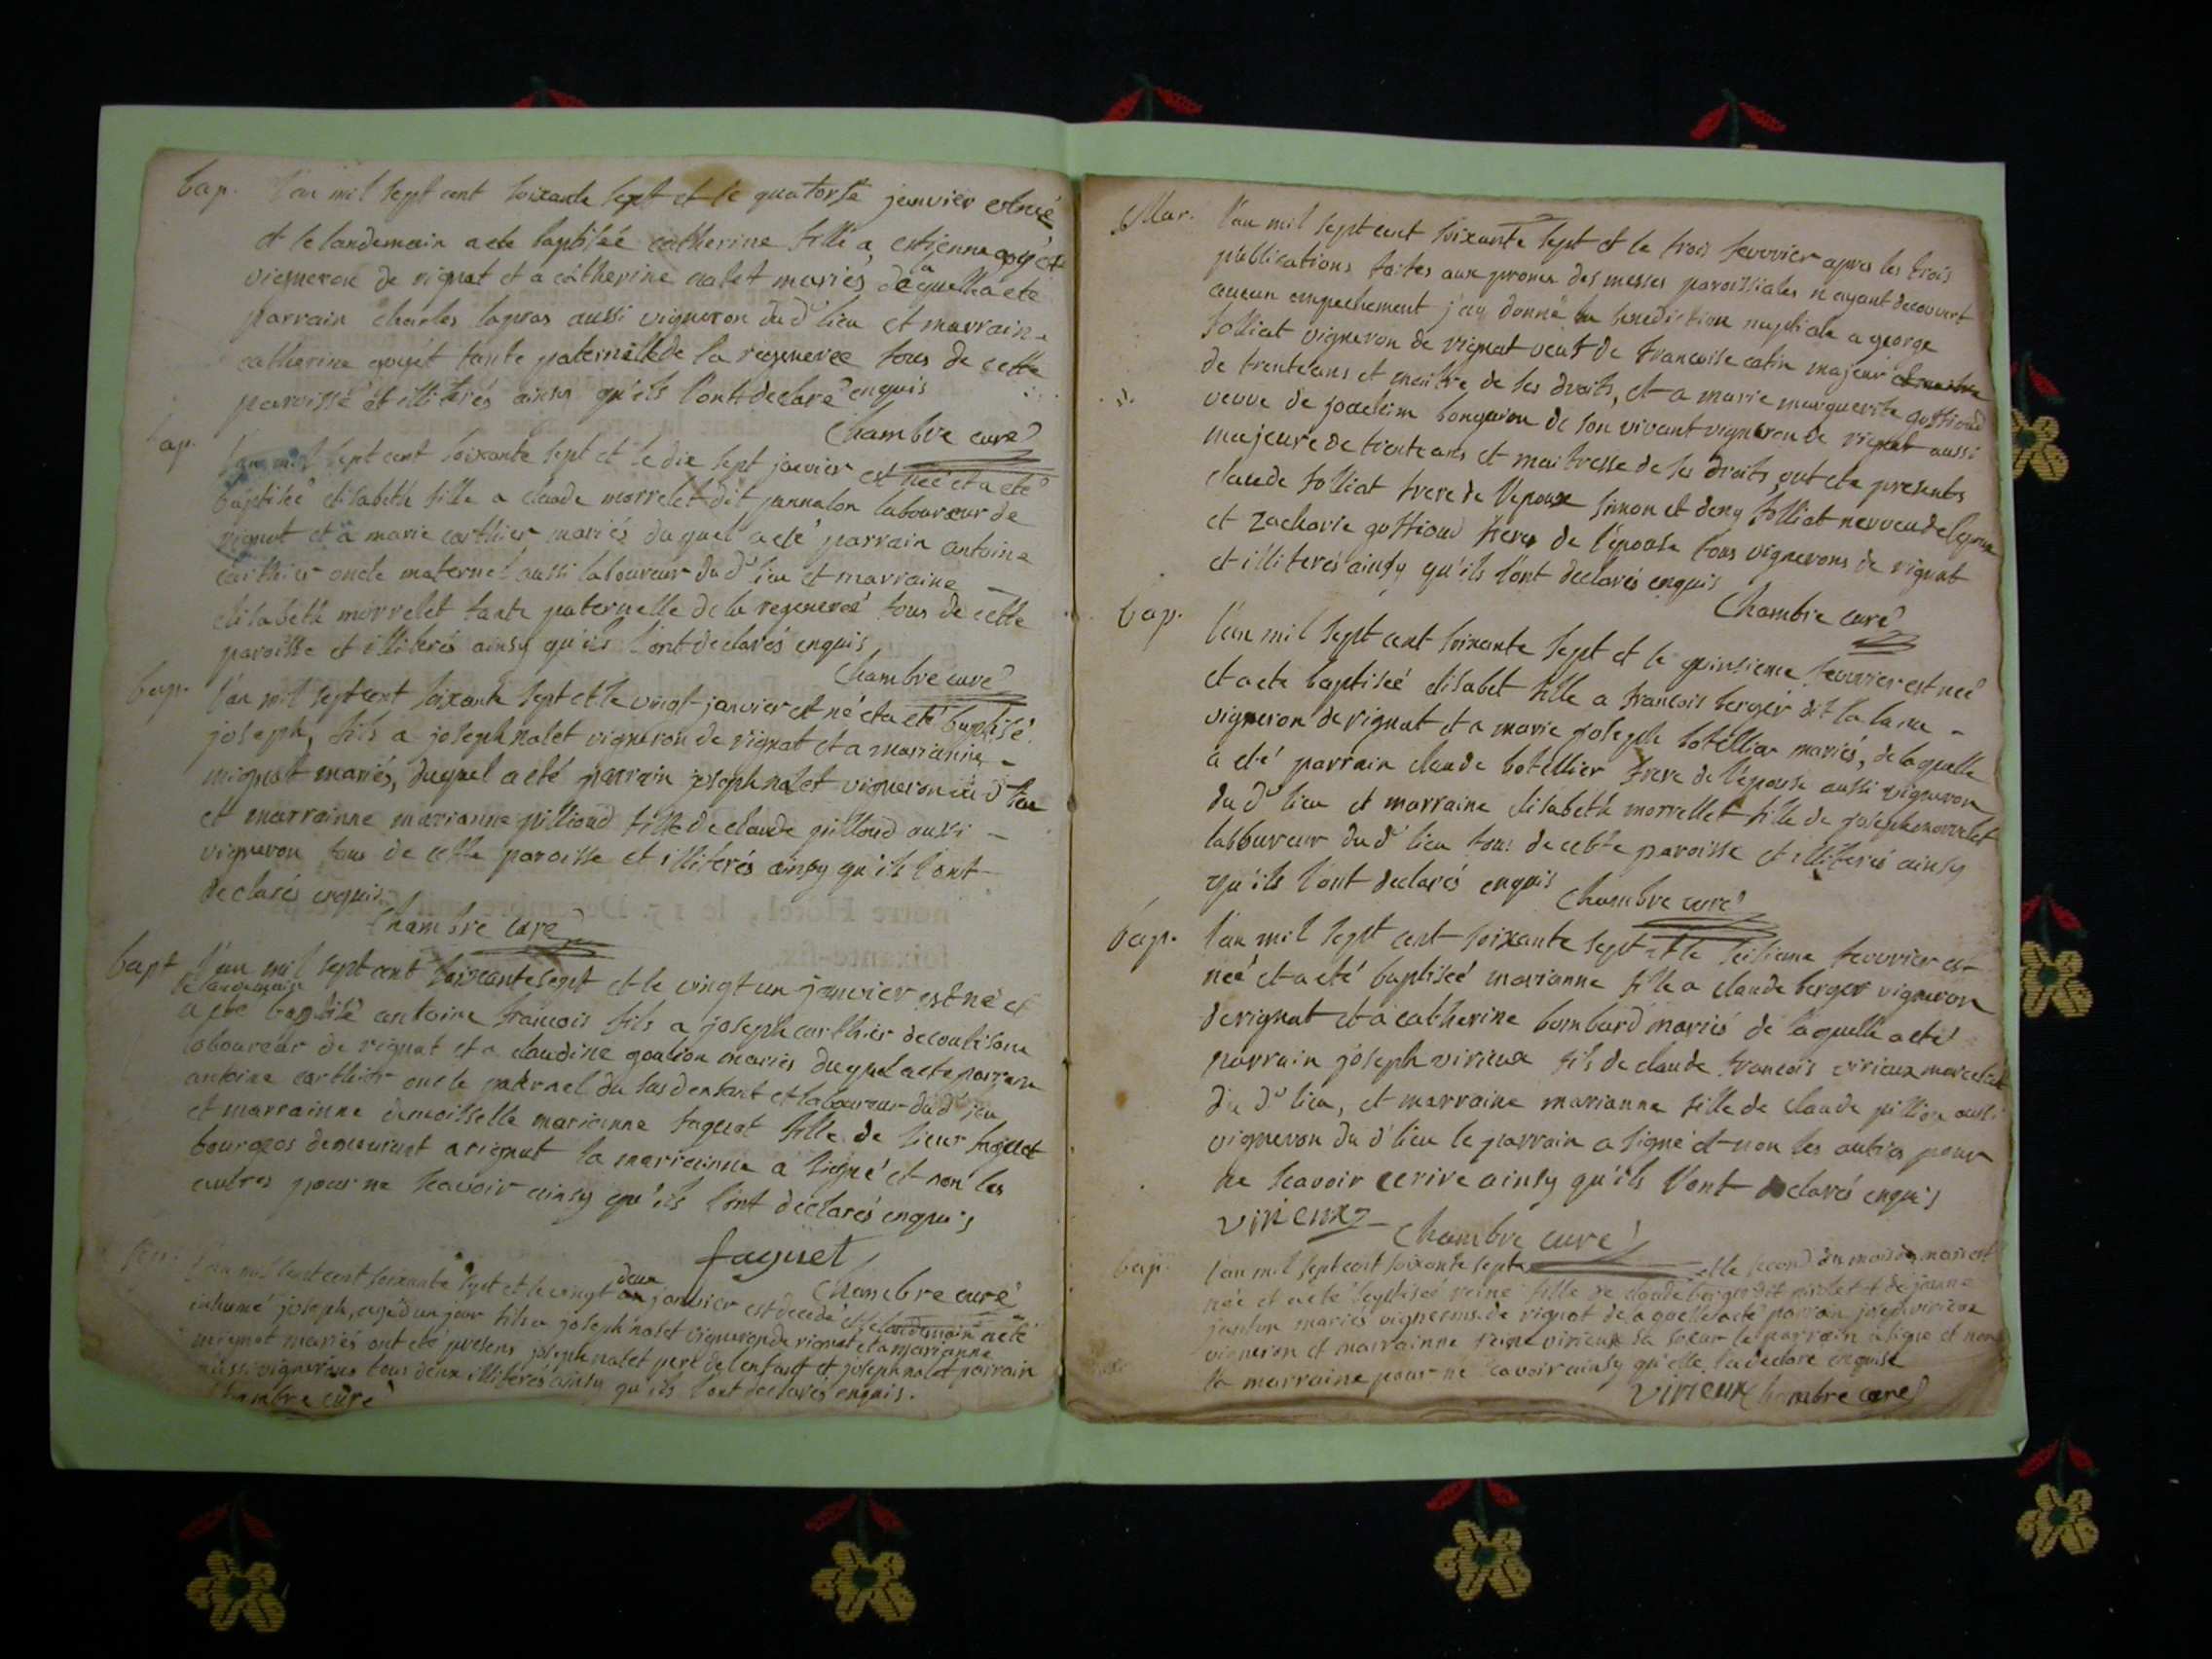 bap. l'an mil sept cent soixante sept et le quatorse janvier est neé
et le landemain a ete baptiseé catherine fille a estienne goÿet
vigneron de rignat et a catherine nalet mariés de laquella ete
parrain charles lapras aussi vigneron du dt lieu et marraine
catherine goyét tante paternelle de la regenereé tous de cette
paroisse et illiterés ainsy qu'ils l'ont declaré enquis
Chambre curé
bap. l'an mil sept cent soixante sept et le dix sept janvier est neé et a eté
baptiseé elisabeth fille a claude morrelet dit jannalon laboureur de
rignat et a marie carthier mariés duquel a eté parrain antoine
carthier oncle maternel aussi laboureur du dt lieu et marraine
elisabeth morrelet tante paternelle de la regenereé tous de cette
paroisse et illiterés ainsy qu'ils l'ont declarés enquis
Chambre curé
bap. l'an mil sept cent soixante sept et le vingt janvier est né et a eté baptisé
joseph, fils a joseph nalet vigneron de rignat et a marianne
mignot mariés, duquel a eté parrain joseph nalet vigneron du dt lieu
et marrainne marianne pillioud fille de claude pilloud aussi
vigneron tous de cette paroisse et illiterés ainsy qu'ils l'ont
declarés enquis
Chambre curé
bapt l'an mil sept cent soixante sept et le vingt un janvier est né et
le landemain
a ete baptisé antoine francois fils a joseph carthier
laboureur de rignat et a claudine goalion mariés duquel a ete parrain
antoine carthier oncle paternel du susd enfant et laboureur du dt lieu
et marrainne demoisselle marianne faguet fille de sieur faguet
bourgeos demeurant a rignat la marrainne a signé et non les
autres pour ne scavoir ainsy qu'ils l'ont declarés enquis
faguet
Chambre curé
l'an mil sept cent soixante sept et le vingt deux janvier est decedé et le landemain a eté
inhumé joseph, agé d'un jour fils a joseph nalet vigneron de rignat et a marianne
mignot mariés ont eté presens joseph nalet pere de l'enfant et joseph nalet parrain
aussi vignerons tous deux illiterés ainsy qu'ils l'ont declarés enquis.
Chambre curé
Mar. l'an mil sept cent soixante sept et le trois fevrier apres les trois
publications faites aux prones des messes paroissiales n'ayant decouvert
aucun empechement j'ay donné la benediction nuptiale a george
folliat vigneron de rignat veuf de francoise catin majeur
de trente ans et maitre de ses droits, et a marie marguerite goffioud
veuve de joachim bonguion de son vivant vigneron de rignat aussi
majeure de trente ans et maitresse de ses droits, ont ete presents
claude folliat frere de l'epoux simon et deny folliat nerveu de l'epoux
et zacharie goffioud frere de l'épouse tous vignerons de rignat
et illiterés ainsy qu'ils l'ont declarés enquis
Chambre curé
bap. l'an mil sept cent soixante sept et le quinsieme fevvrier est neé
et a ete baptiseé elisabet fille a francois berger dit la lame
vigneron de rignat et a marie joseph botellier mariés, de laquelle
a eté parrain claude botellier frere de l'épouse aussi vigneron
du dt lieu et marraine elisabeth morrellet fille de joseph morrelet
labboureur du dt lieu tous de cette paroisse et illiterés ainsy
qu'ils l'ont declarés enquis
Chambre curé
bap. l'an mil sept cent soixante sept et le seisieme fevvrier est
neé et a eté baptiseé marianne fille a claude berger vigneron
de rignat et a catherine bombard mariés de laquelle a eté
parrain joseph virieux fils de claude francois virieux
du dt lieu, et marraine marianne fille de claude pillion aussi
vigneron du dt lieu le parrain a signé et non les autres pour
ne scavoir ecrire ainsy qu'ils l'ont declarés enquis
virieux
Chambre curé
bap. l'an mil sept cent soixante sept et le second du mois de mars est
née et a eté baptiseé reine fille de claude berger dit et de jeanne
mariés vignerons de rignat de laquelle a eté parrain joseph virieux
vigneron et marrainne reine virieux sa soeur le parrain a signé et non
la marraine pour ne scavoir ainsy qu'elle l'a declaré enquise
virieux Chambre curé